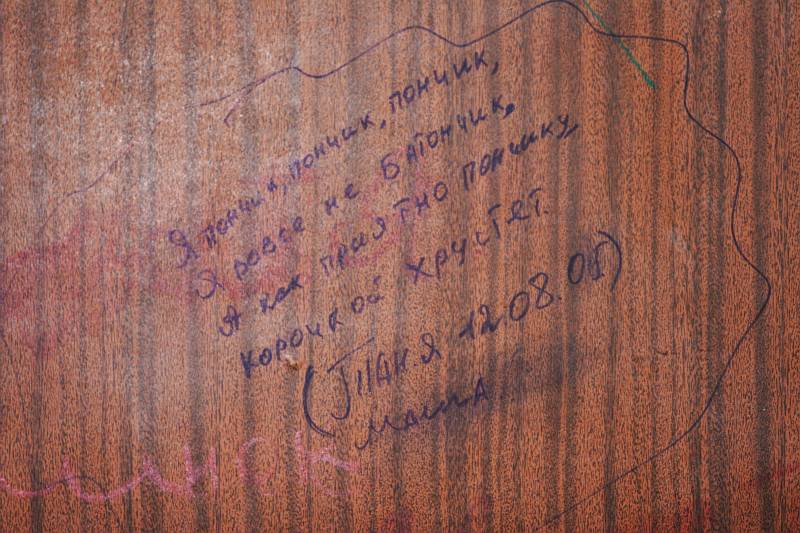 Я пончик, пончик, пончик,
Я вовсе не Батончик,
А как приятно пончику,
корочкой хрустет.
(Таня 12.08.01)
Маша
анск